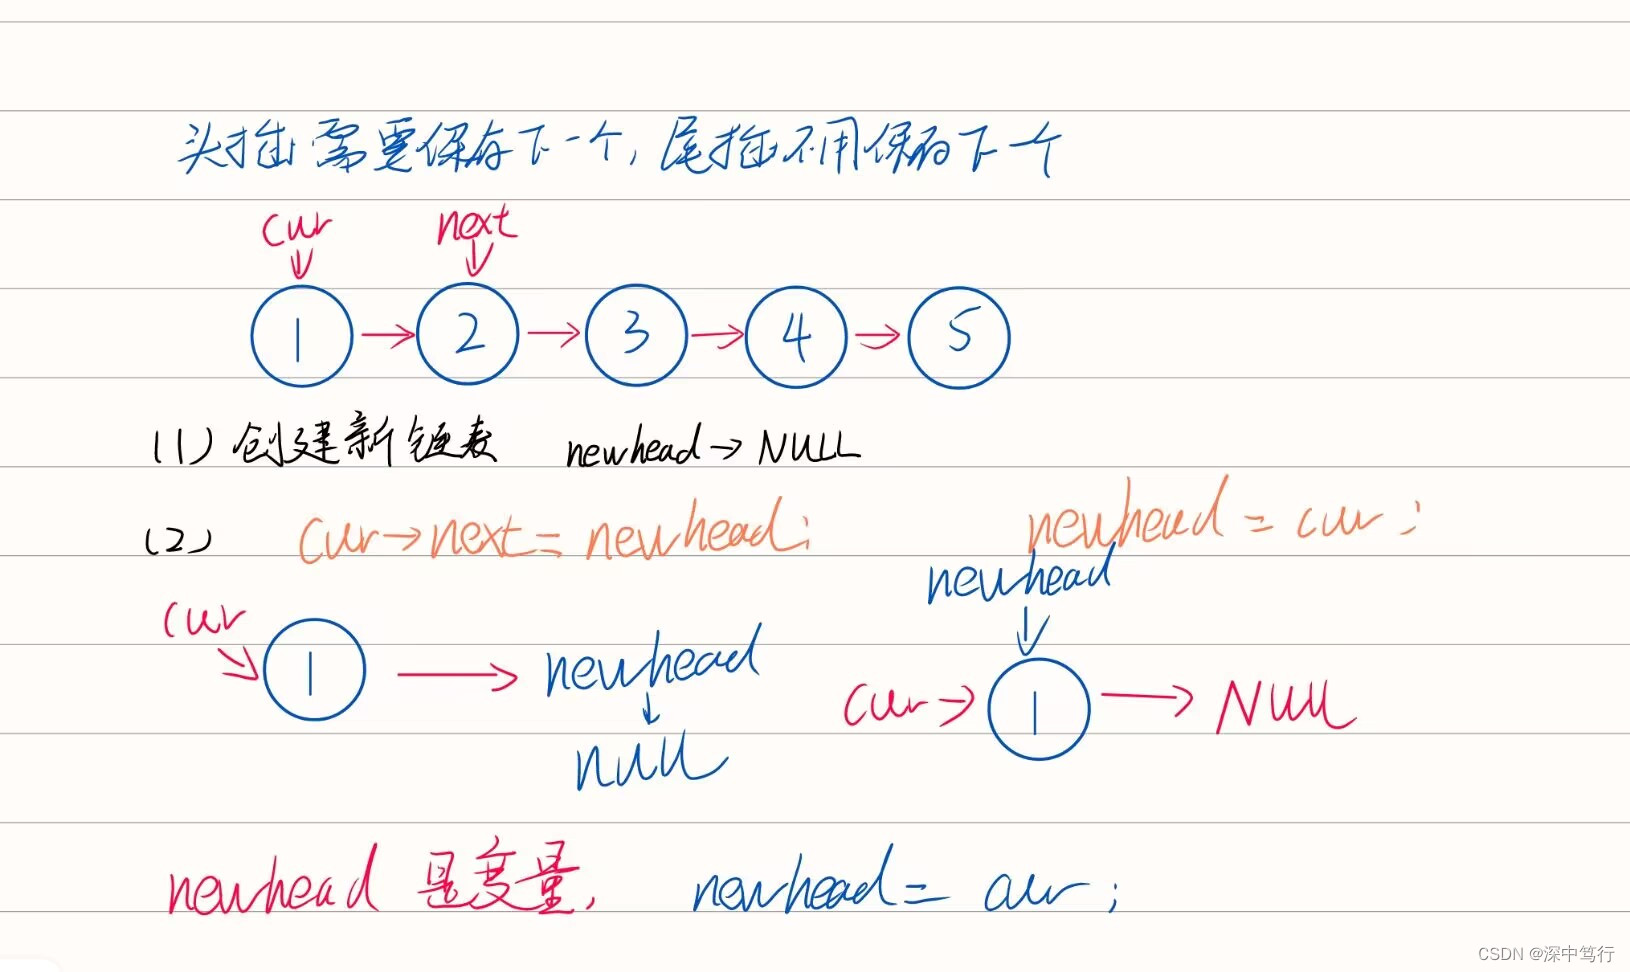 头插需要保存下一个,尾插不用保存下一个
cur next
1 → 2 → 3 → 4 → 5
(1) 创建新链表 newhead → NULL
(2) cur→next = newhead; newhead = cur;
newhead
cur 1 → newhead cur → 1 → NULL
null
newhead 是变量, newhead = cur;
CSDN @深中笃行